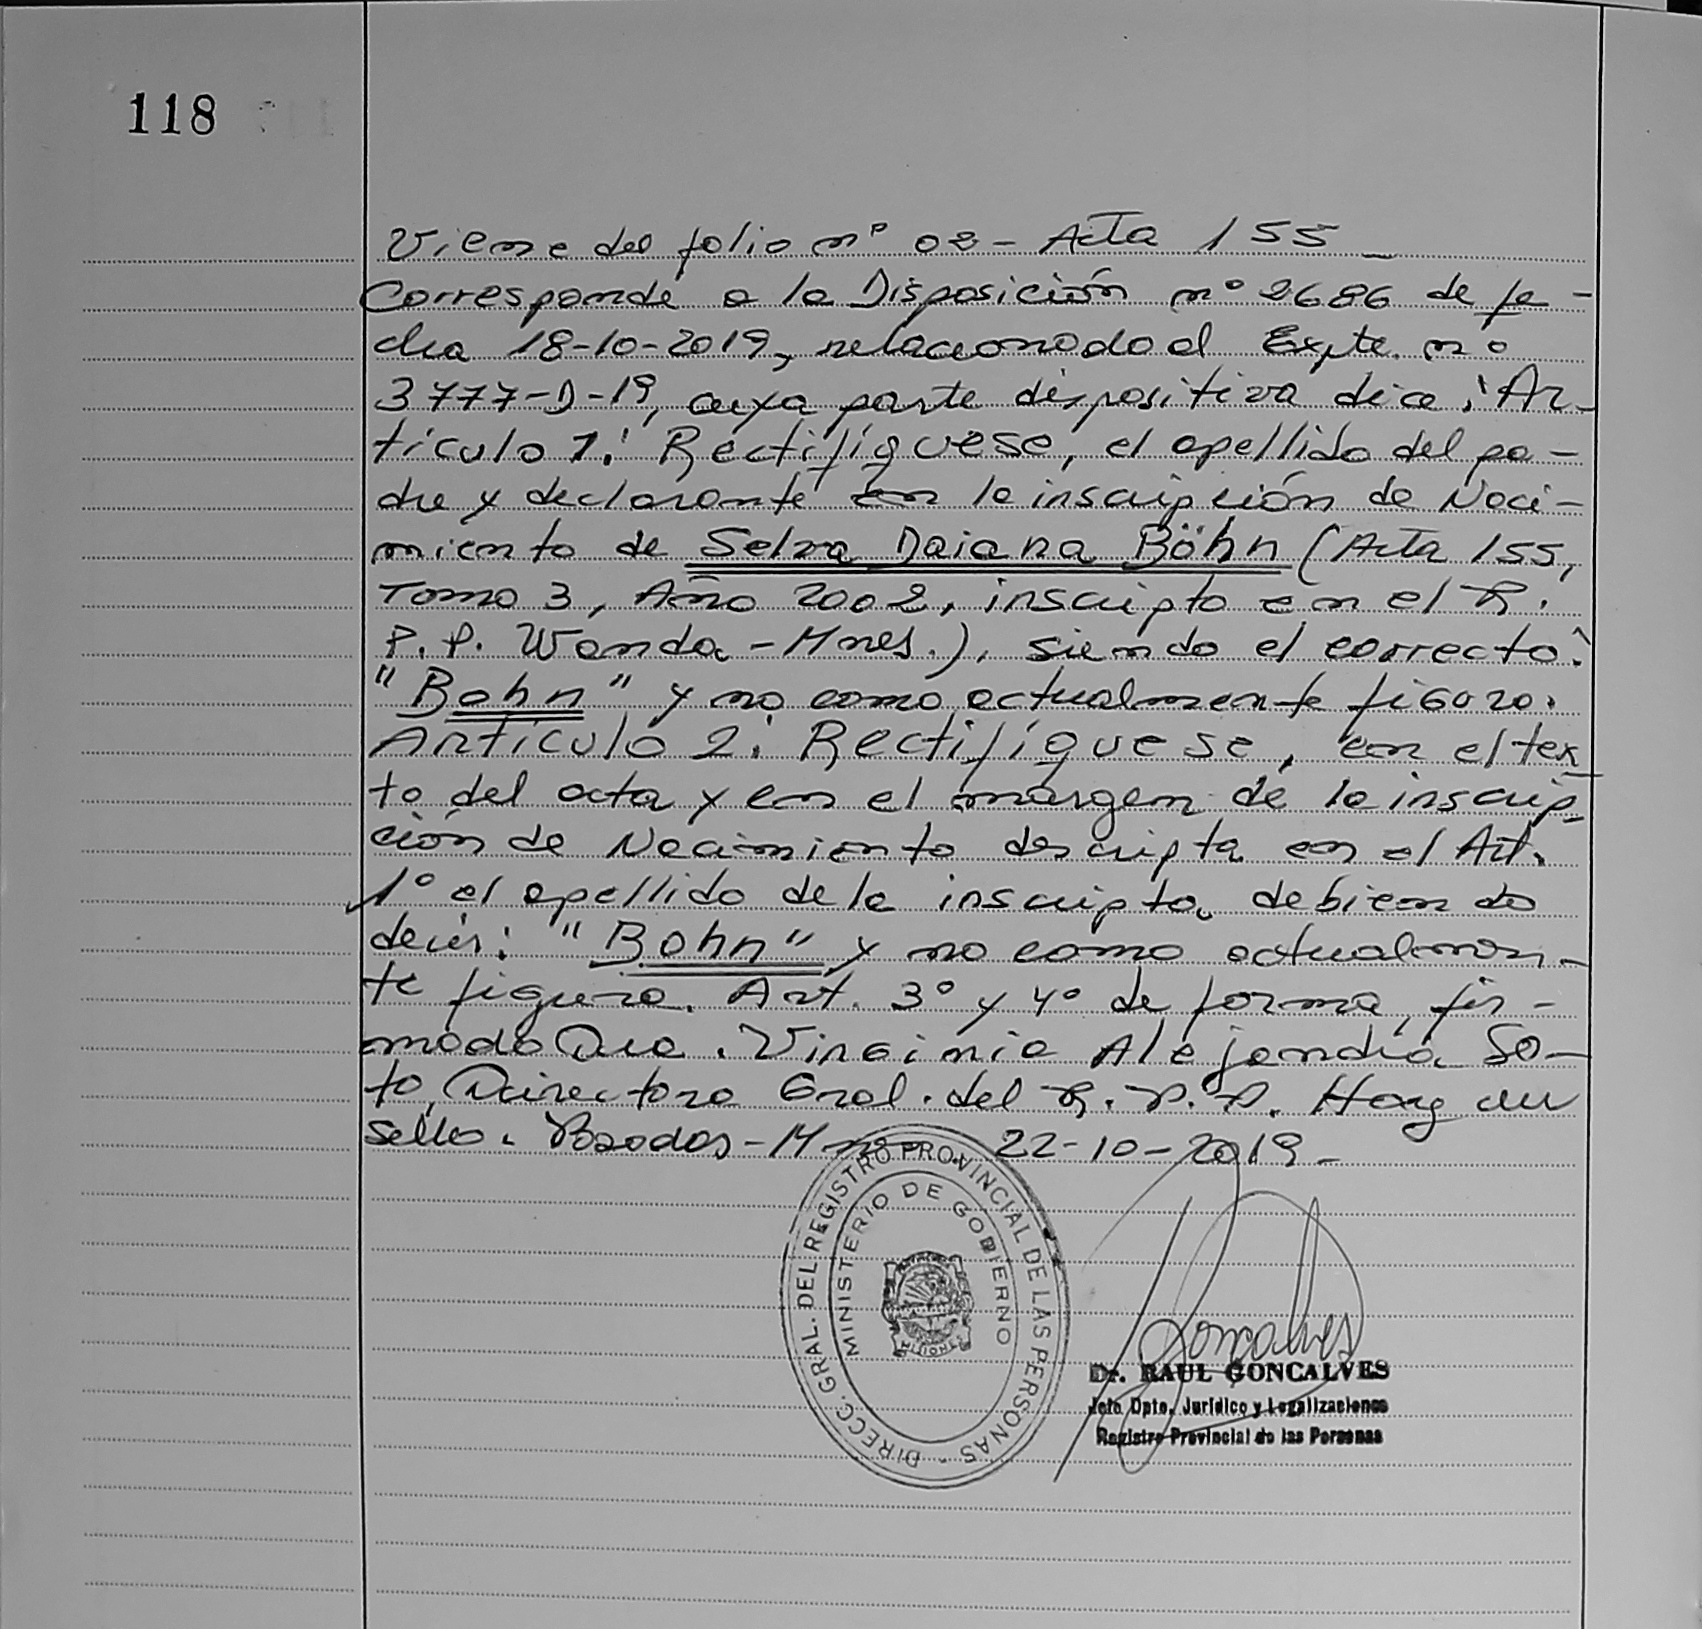 118
Viene del folio nº 02 - Acta 155
Corresponde a la Disposición nº 2686 de fe-
cha 18-10-2019, relacionado al Expte. nº
3777-D-19, cuya parte dispositiva dice: "Ar-
tículo 1: Rectifíquese, el apellido del pa-
dre y declarante en la inscripción de Naci-
miento de Selva Daiana Böhn (Acta 155,
Tomo 3, Año 2002, inscripto en el R.
P.P. Wanda - Mnes.), siendo el correcto:
"Bohn" y no como actualmente figura.
Artículo 2: Rectifíquese, en el tex
to del acta y en el margen de la inscrip
ción de Nacimiento descripta en el Art.
1º el apellido de la inscripta, debiendo
decir: "Bohn" y no como actualmen-
te figura. Art. 3º y 4º de forma, fir-
mado Dra. Virginia Alejandra So-
to, Directora Gral. del R.P.P. Hay un
sello. Posadas - 22-10-2019-
DIRECC. GRAL. DEL REGISTRO PROVINCIAL DE LAS PERSONAS -
MINISTERIO DE GOBIERNO
MISIONES
Goncalves
Dr. RAUL GONCALVES
Jefe Dpto. Jurídico y Legalizaciones
Registro Provincial de las Personas